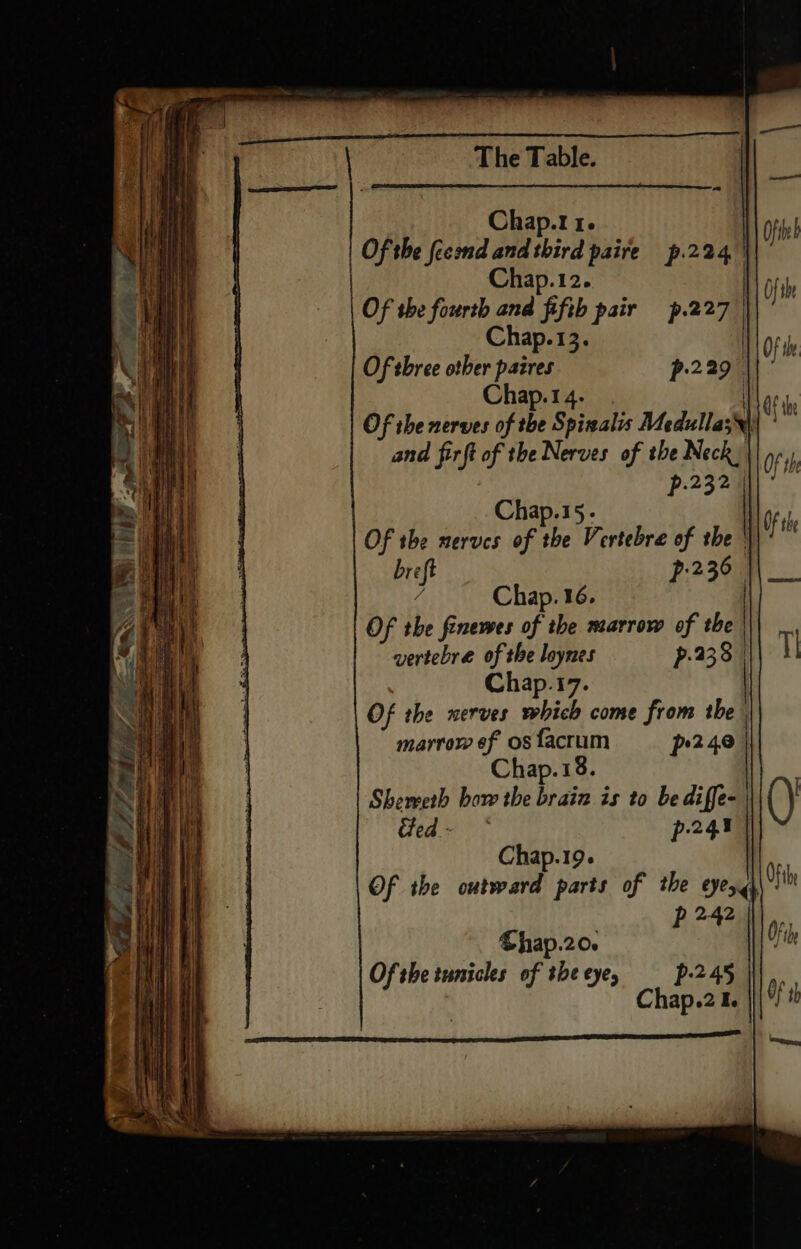 The Table.
Chap.11.
Of the ſecond and third paire p.224
Chap.12.
Of the fourth and fifth pair p.227
Chap.13.
Of three other paires p.229
Chap.14.
Of the nerves of the Spinalis Medulla,
and firſt of the Nerves of the Neck
p.232
Chap.15.
Of the nerves of the Vertebræ of the
breſt p.236
Chap.16.
Of the ſinewes of the marrow of the
vertebræ of the loynes p.238
Chap.17.
Of the nerves which come from the
marrow of os ſacrum p.240
Chap.18.
Sheweth how the brain is to be diſſe-
cted. p.241
Chap.19.
Of the outward parts of the eyes,
p 242
Chap.20.
Of the tunicles of the eye, p.245
Chap.21.
Of the
Of the
Of the
Of the
Of the
Of the
Of the
Of the